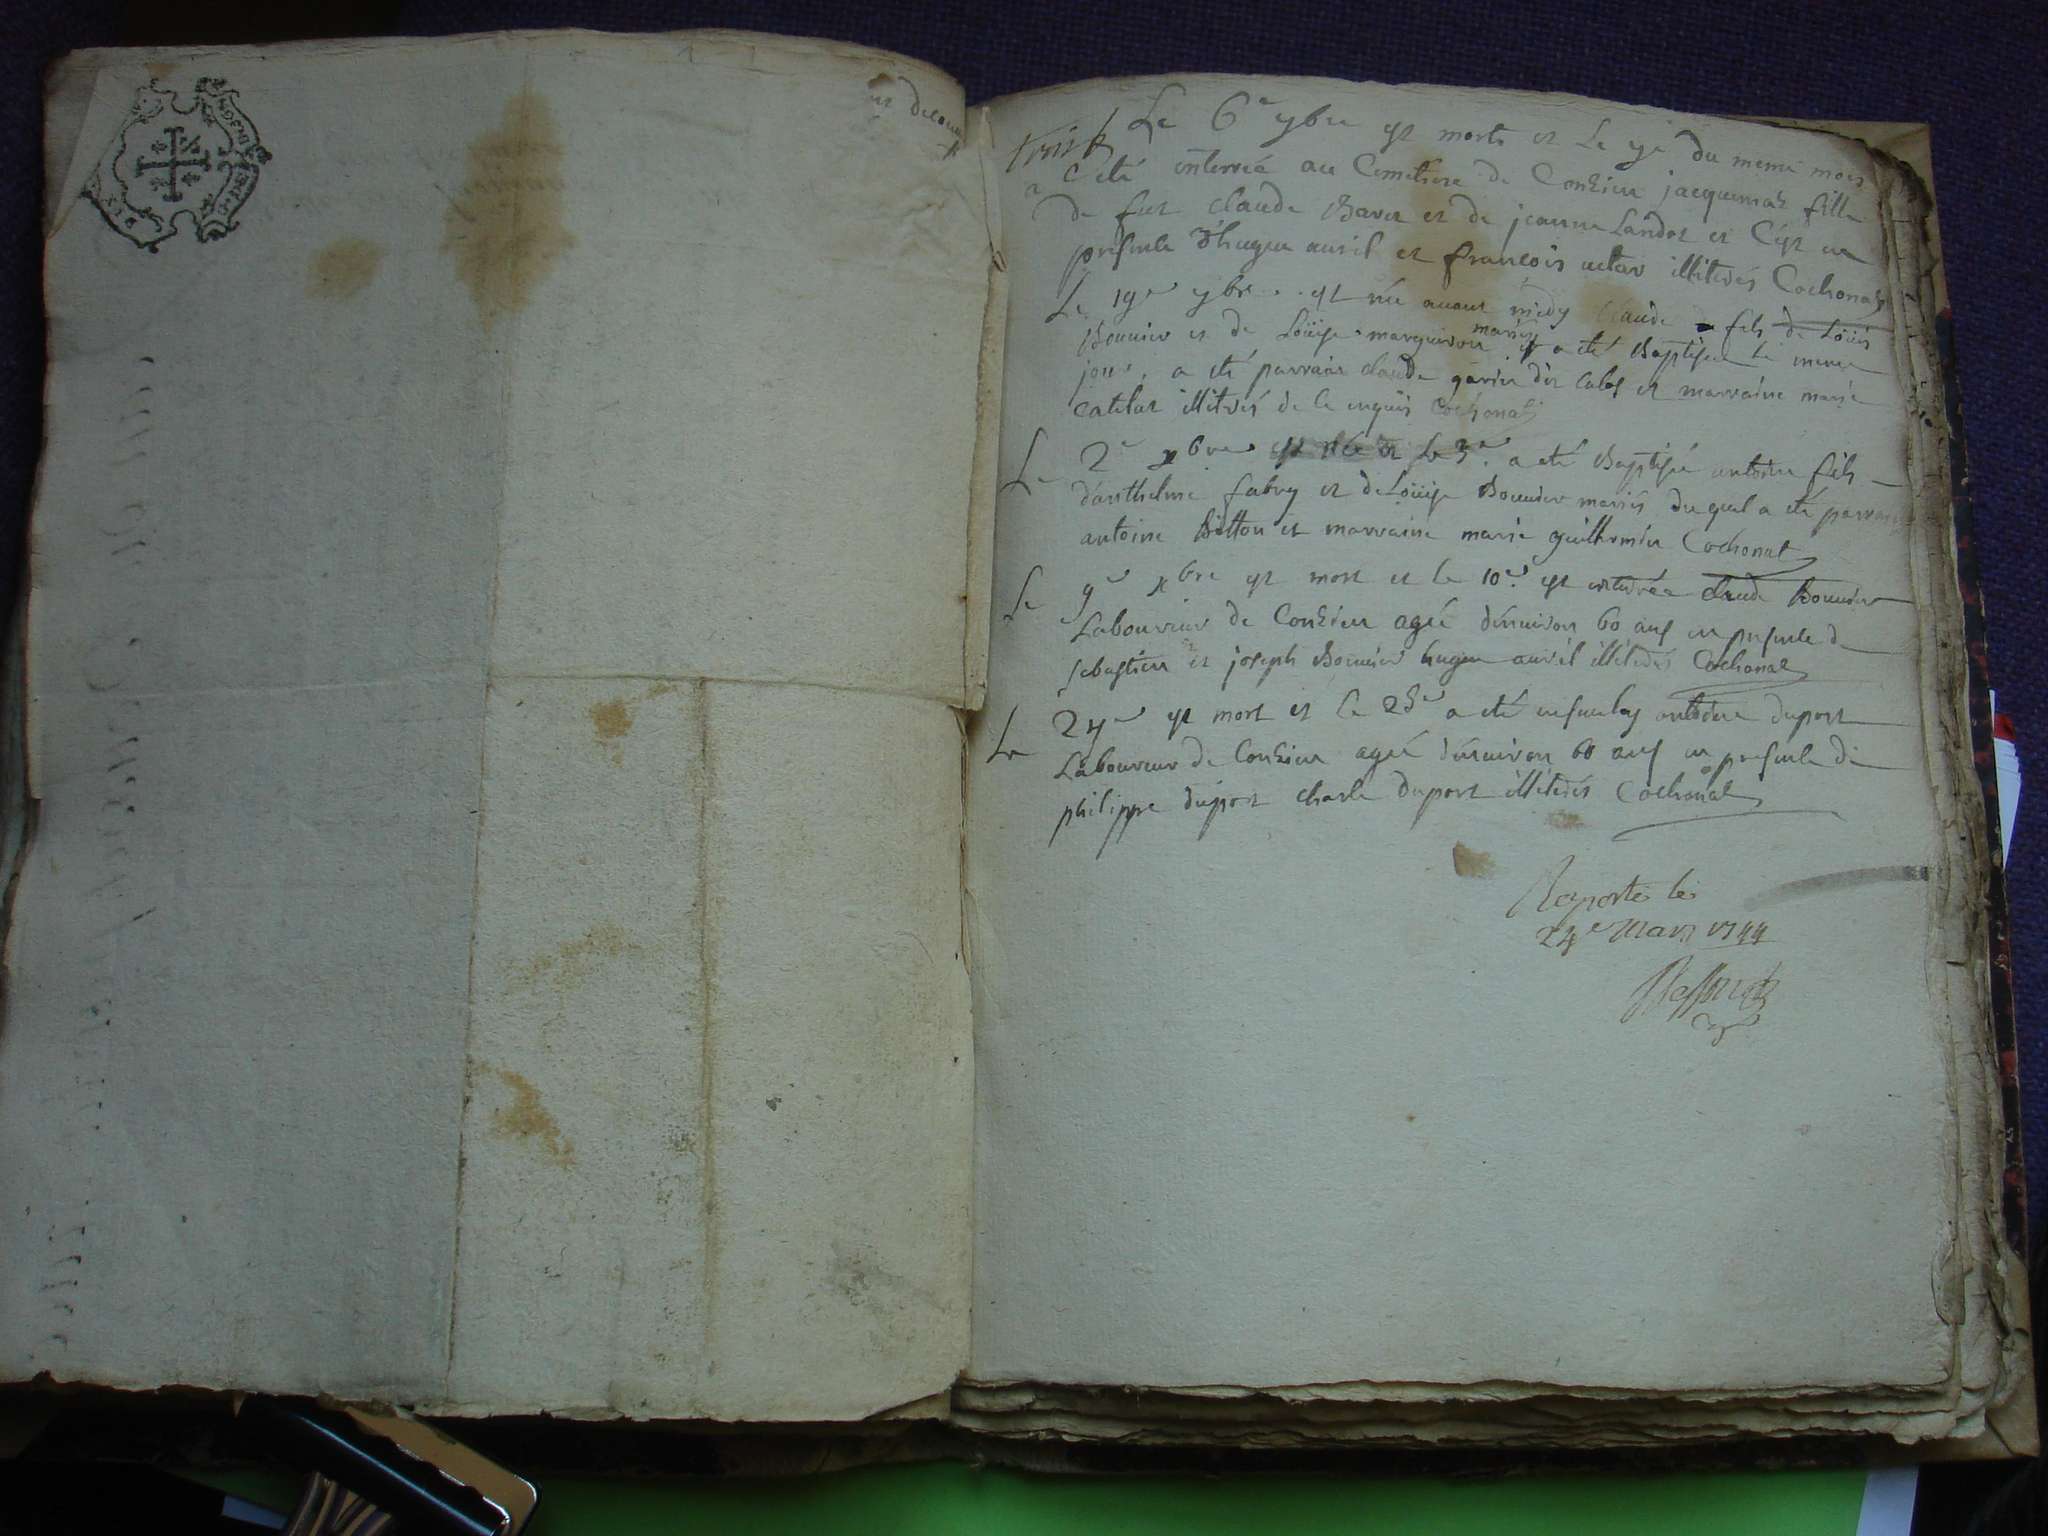 Le 6e 9bre est morte et Le 7e du meme mois
a eté enterreé au Cemetiere de Conzieu jacquemaz fille
de fut claude Bavoz et de jeanne Landoz et C'est en
presence d'hugue auril et francois illiterés Cochonat
Le 19e 9bre est née avant midy claude fils de Loüis
Bouvier et de Loüise marguiron mariés et a eté Baptiseé le meme
jour. a eté parrain claude dit et marraine marie
Catelat illitrés de ce enquis Cochonat
Le 2e xbre est née et Le 3e a eté Baptisé antoine fils
d'anthelme fabry et de Loüise Bouvier mariés duquel a eté parrain
antoine Bitton et marraine marie guillermier Cochonat
Le 9e xbre est mort et le 10e est enterrée claude Bouvier
Laboureur de Conzieu ageé d'environ 60 ans en presence de
sebastien et joseph Bouvier hugue auril illiterés Cochonat
Le 27e est mort et le 28e a eté antoine duport
Laboureur de Conzieu ageé d'environ 60 ans en presence de
philippe duport charle duport illiterés Cochonat
Reporté le
24e Mars 1744